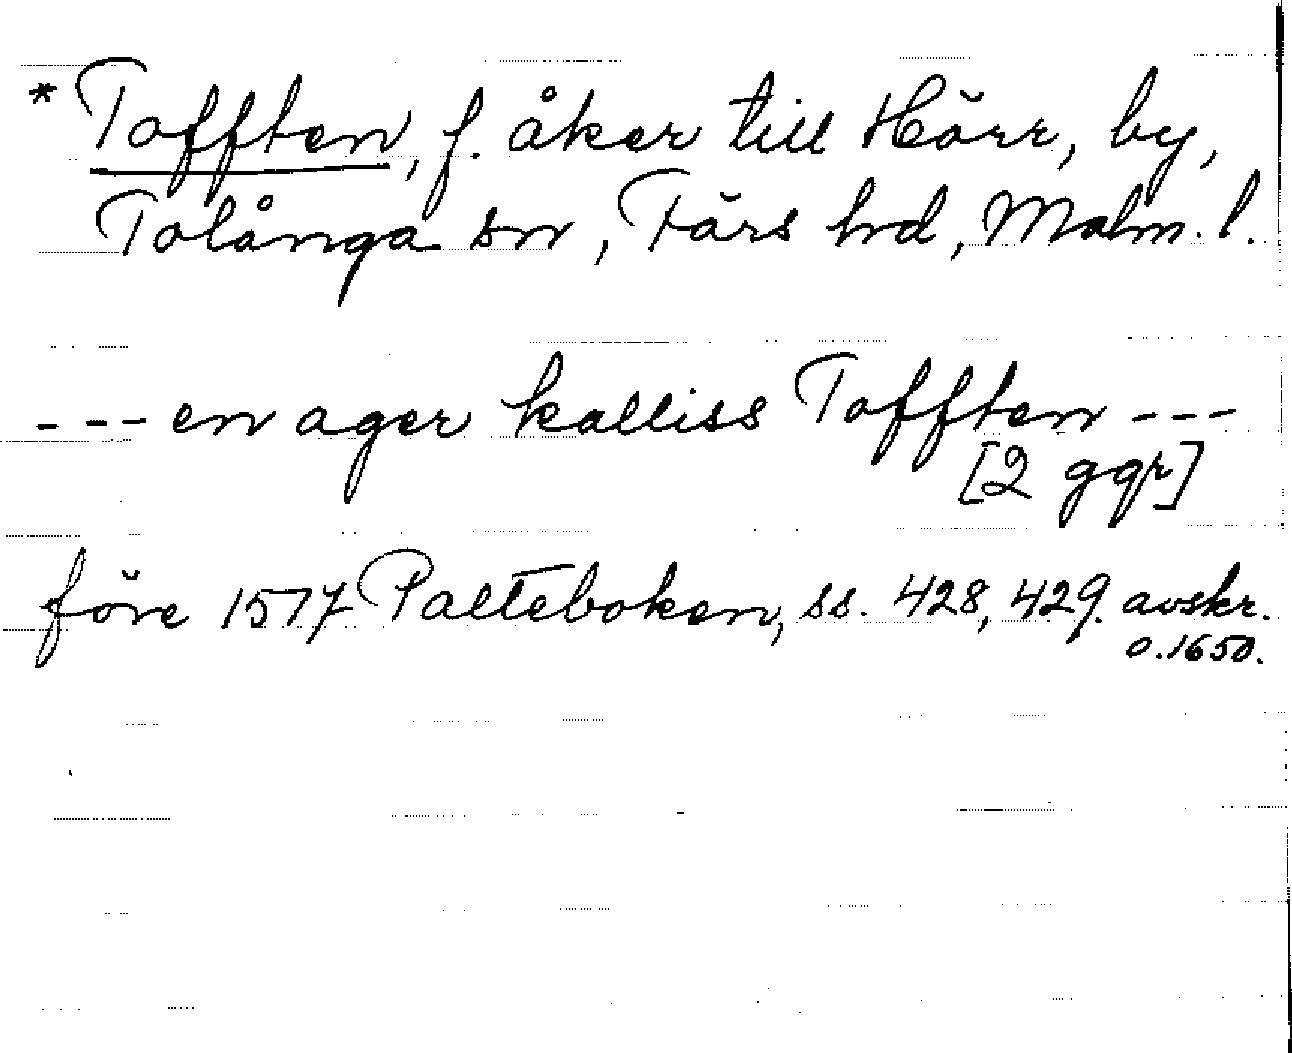 * Tofften, f. åker till Hörr, by,
Tolånga sn, Färs hd, Malm. l.
--- en ager kalliss Tofften ---
[2 ggr]
före 1577 Palteboken, ss. 428, 429. avskr.
o. 1650.